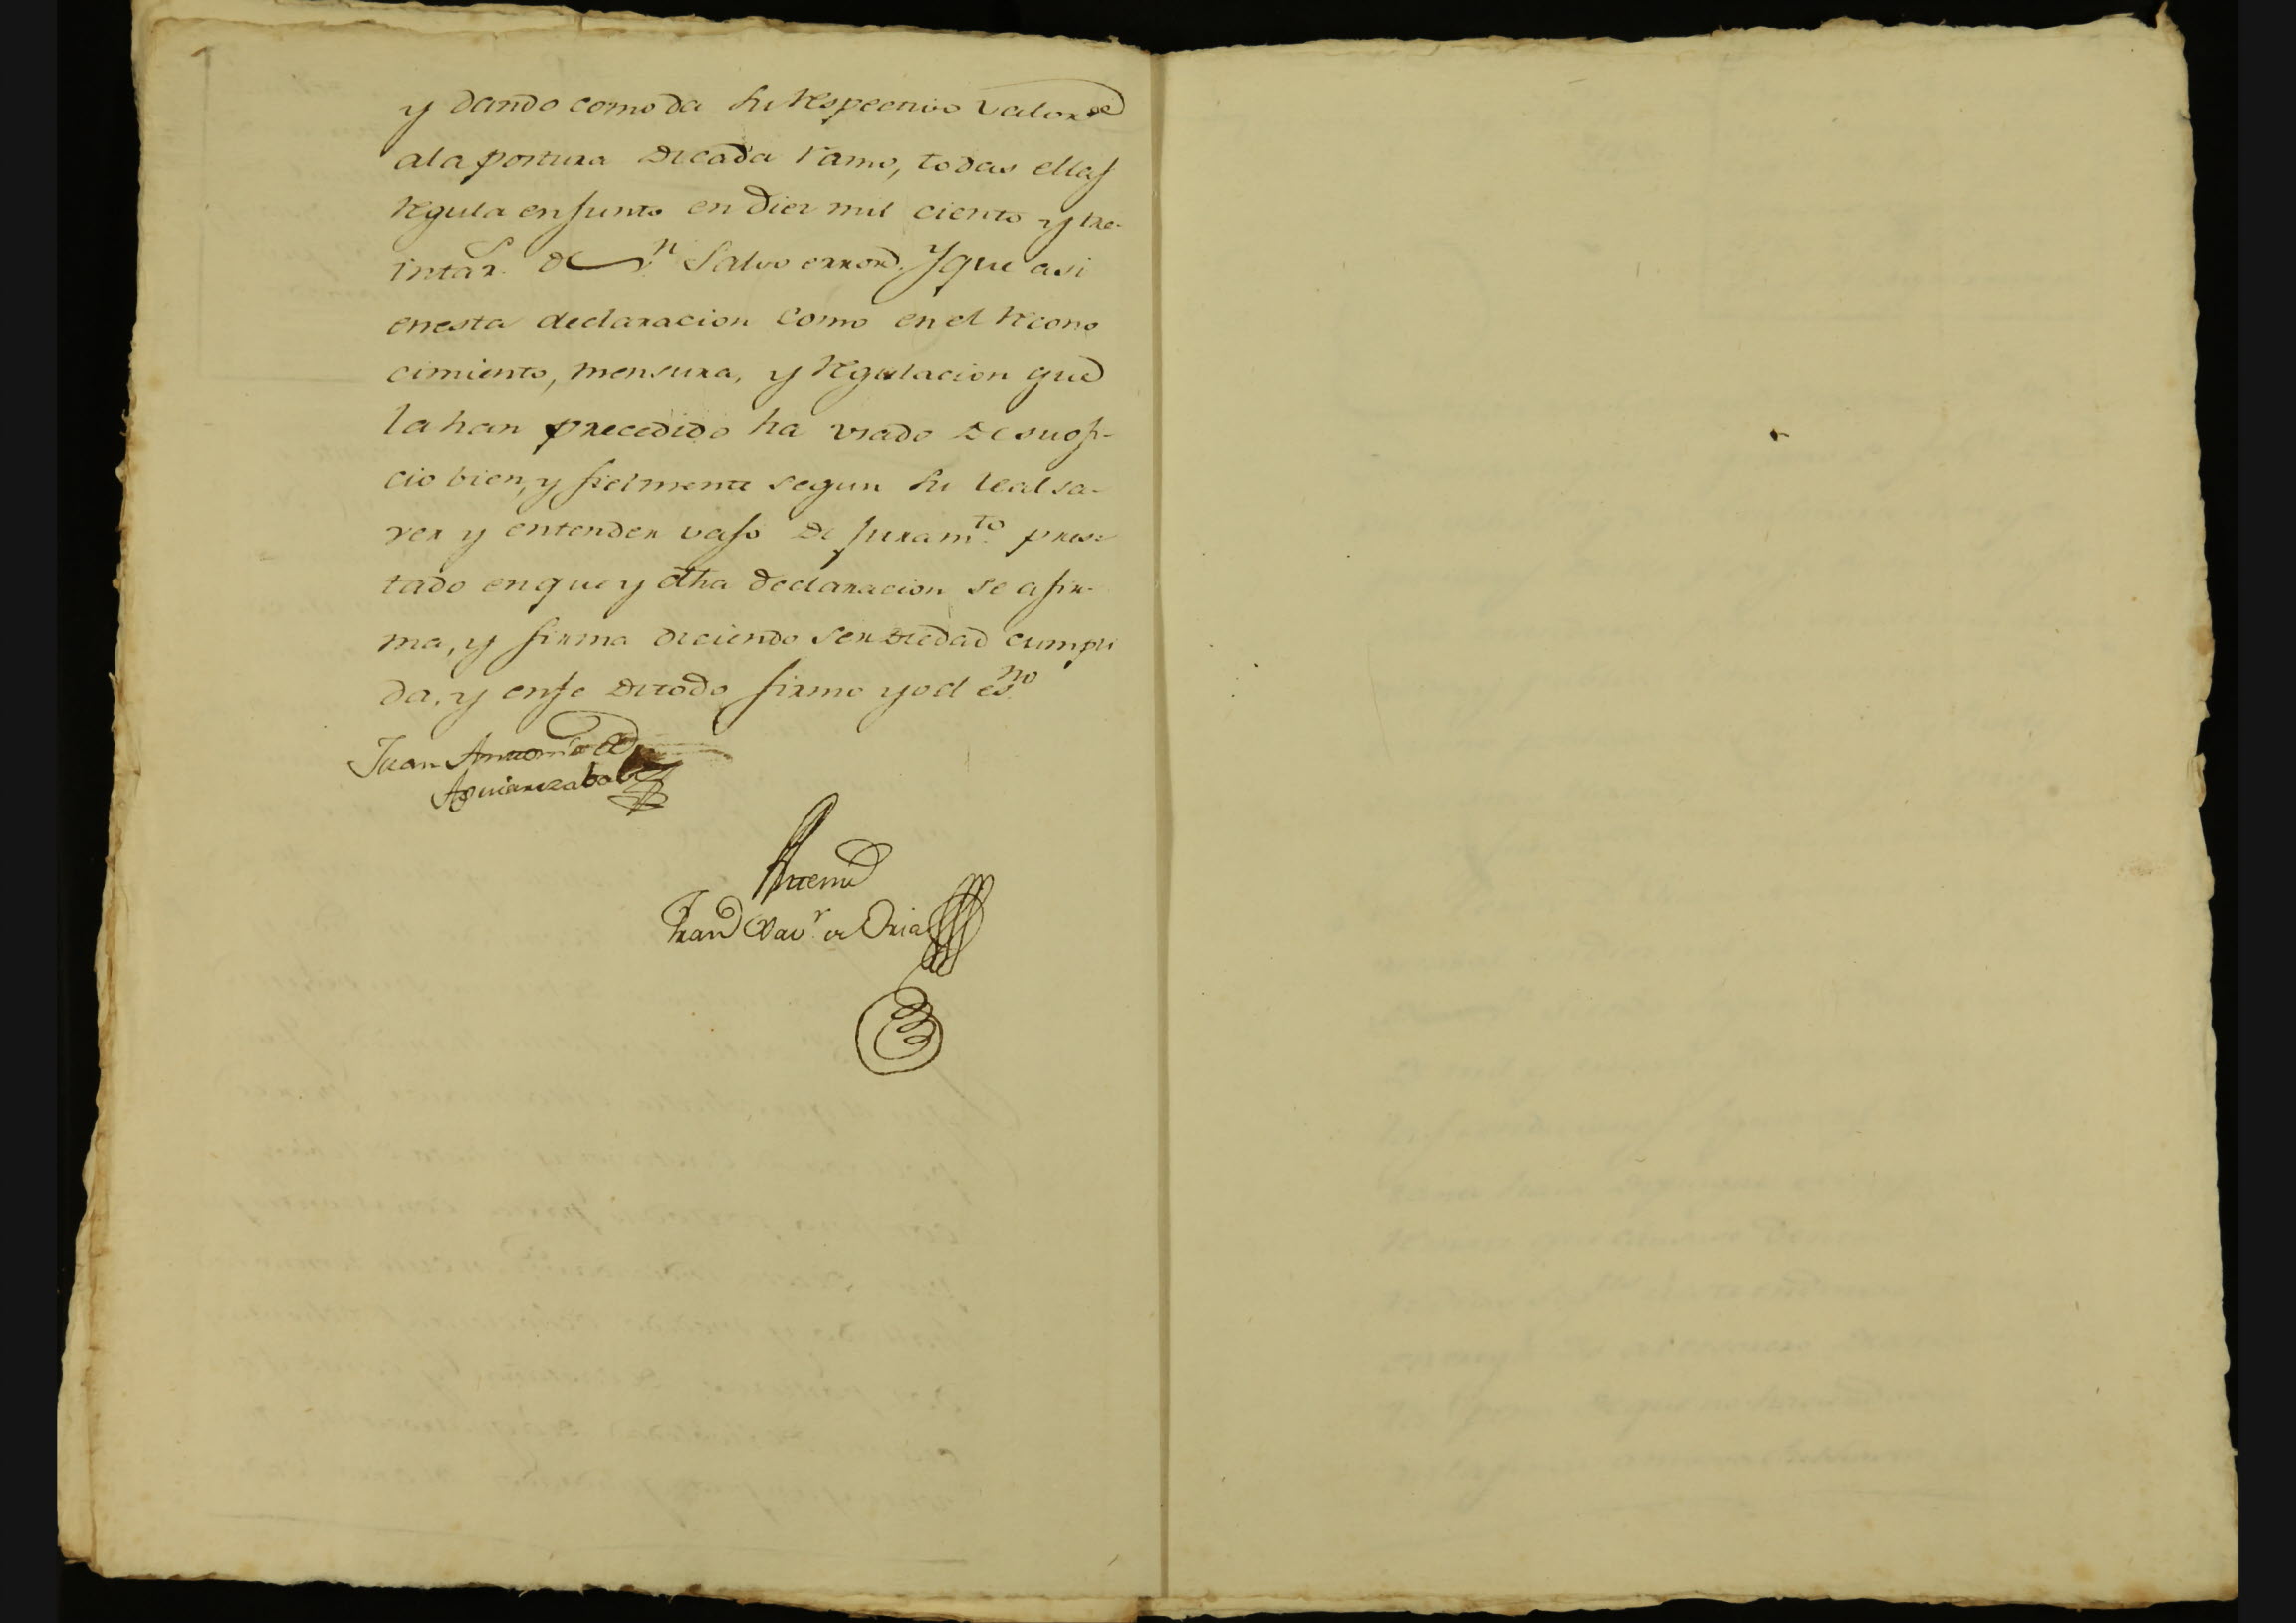 y dando como da su respectivo valor
ala postura de cada ramo, todas ellas
regula enjunto en diez mil ciento y tre-
inta r.s de v.n salvo error. Y que asi
enesta declaracion como en el recono
cimiento, mensura, y regulacion que
la han precedido ha vsado de su ofi-
cio bien, y fielmente segun su leal sa-
ver y entender vajo de juram.to pres-
tado enque y dha declaracion se afir-
ma, y firma diciendo ser de edad cumpli
da, y enfe de todo firmo yo el es.no
Juan Antonio de
Aguirrezabal
Antemi
Fran.co Xav.r de Oria